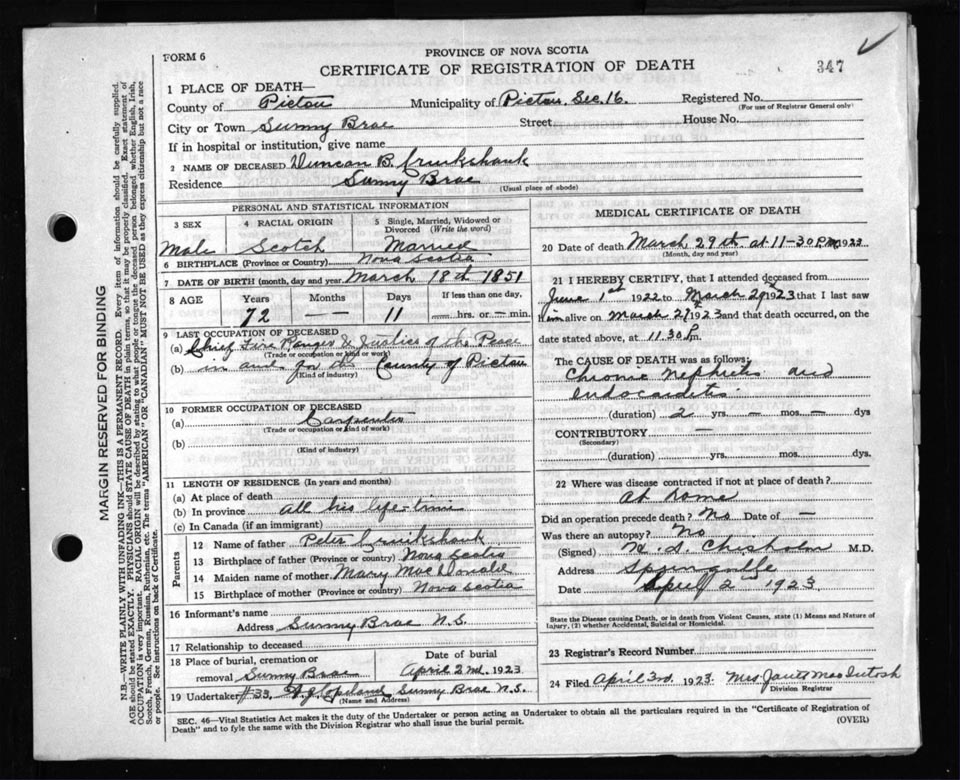 PROVINCE OF NOVA SCOTIA
FORM 6
CERTIFICATE OF REGISTRATION OF DEATH
347
1 PLACE OF DEATH—
County of Pictou Municipality of Pictou Sec. 16. Registered No.
(For use of Registrar General only)
City or Town Sunny Brae Street House No.
If in hospital or institution, give name
2 NAME OF DECEASED Duncan B. Cruikshank
Residence Sunny Brae
(Usual place of abode)
PERSONAL AND STATISTICAL INFORMATION
3 SEX 4 RACIAL ORIGIN 5 Single, Married, Widowed or Divorced (Write the word)
Male Scotch Married
6 BIRTHPLACE (Province or Country) Nova Scotia
7 DATE OF BIRTH (month, day and year) March 18th 1851
8 AGE Years Months Days If less than one day,
72 — — 11 — hrs. or — min.
9 LAST OCCUPATION OF DECEASED
(a) Chief Fire Ranger & Justice of the Peace
(Trade or occupation or kind of work)
(b) in and for the County of Pictou
(Kind of industry)
10 FORMER OCCUPATION OF DECEASED
(a) Carpenter
(Trade or occupation or kind of work)
(b)
(Kind of industry)
11 LENGTH OF RESIDENCE (In years and months)
(a) At place of death
(b) In province all his life-time
(c) In Canada (if an immigrant)
Parents
12 Name of father Peter Cruikshank
13 Birthplace of father (Province or country) Nova Scotia
14 Maiden name of mother Mary MacDonald
15 Birthplace of mother (Province or country) Nova Scotia
16 Informant's name
Address Sunny Brae N.S.
17 Relationship to deceased
18 Place of burial, cremation or removal Sunny Brae Date of burial April 2nd. 1923
19 Undertaker #33, Copeland Sunny Brae N.S.
(Name and Address)
MEDICAL CERTIFICATE OF DEATH
20 Date of death March 29th at 11-30 P.M. 1923
(Month, day and year)
21 I HEREBY CERTIFY, that I attended deceased from
June 1st 1922 to March 29 1923 that I last saw
him alive on March 1923 and that death occurred, on the
date stated above, at 11.30 P.m.
The CAUSE OF DEATH was as follows:
Chronic Nephritis and
Endocarditis
(duration) 2 yrs. — mos. — dys
CONTRIBUTORY —
(Secondary)
(duration) yrs. mos. dys.
22 Where was disease contracted if not at place of death?
At home
Did an operation precede death? No Date of —
Was there an autopsy? No
(Signed) Chisholm M.D.
Address Springville
Date April 2 1923
State the Disease causing Death, or in death from Violent Causes, state (1) Means and Nature of
Injury, (2) whether Accidental, Suicidal or Homicidal.
23 Registrar's Record Number
24 Filed April 3rd. 1923. Mrs. MacIntosh
Division Registrar
SEC. 46—Vital Statistics Act makes it the duty of the Undertaker or person acting as Undertaker to obtain all the particulars required in the "Certificate of Registration of
Death" and to fyle the same with the Division Registrar who shall issue the burial permit.
(OVER)
MARGIN RESERVED FOR BINDING
N.B.—WRITE PLAINLY WITH UNFADING INK—THIS IS A PERMANENT RECORD. Every item of information should be carefully supplied.
AGE should be stated EXACTLY. PHYSICIANS should STATE CAUSE OF DEATH in plain terms, so that it may be properly classified. Exact statement of
OCCUPATION is very important. RACIAL ORIGIN will be described by stating to what people or tongue the deceased person belonged whether English, Irish,
Scotch, French, German, Russian, Ruthenian, etc. The terms "AMERICAN" OR "CANADIAN" MUST NOT BE USED as they express citizenship but not a race
or people. See instructions on back of Certificate.